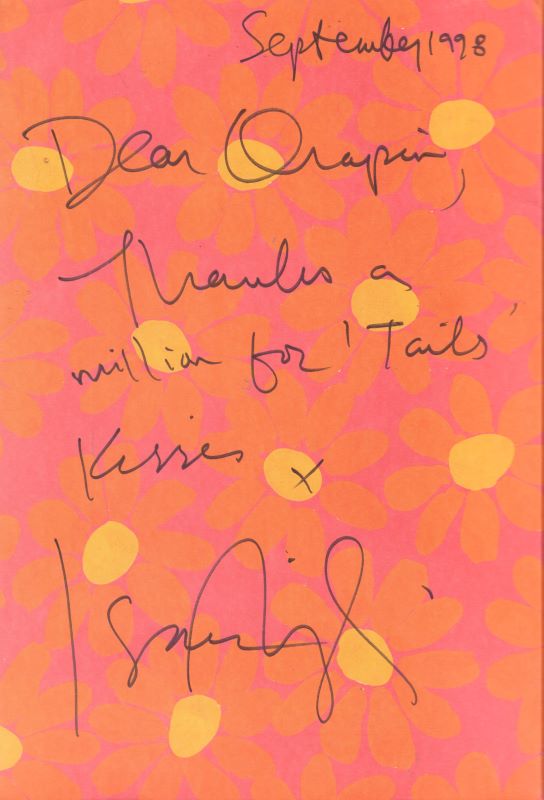 September 1998
Dear Orapin,
Thanks a
million for 'Tails'
Kisses x